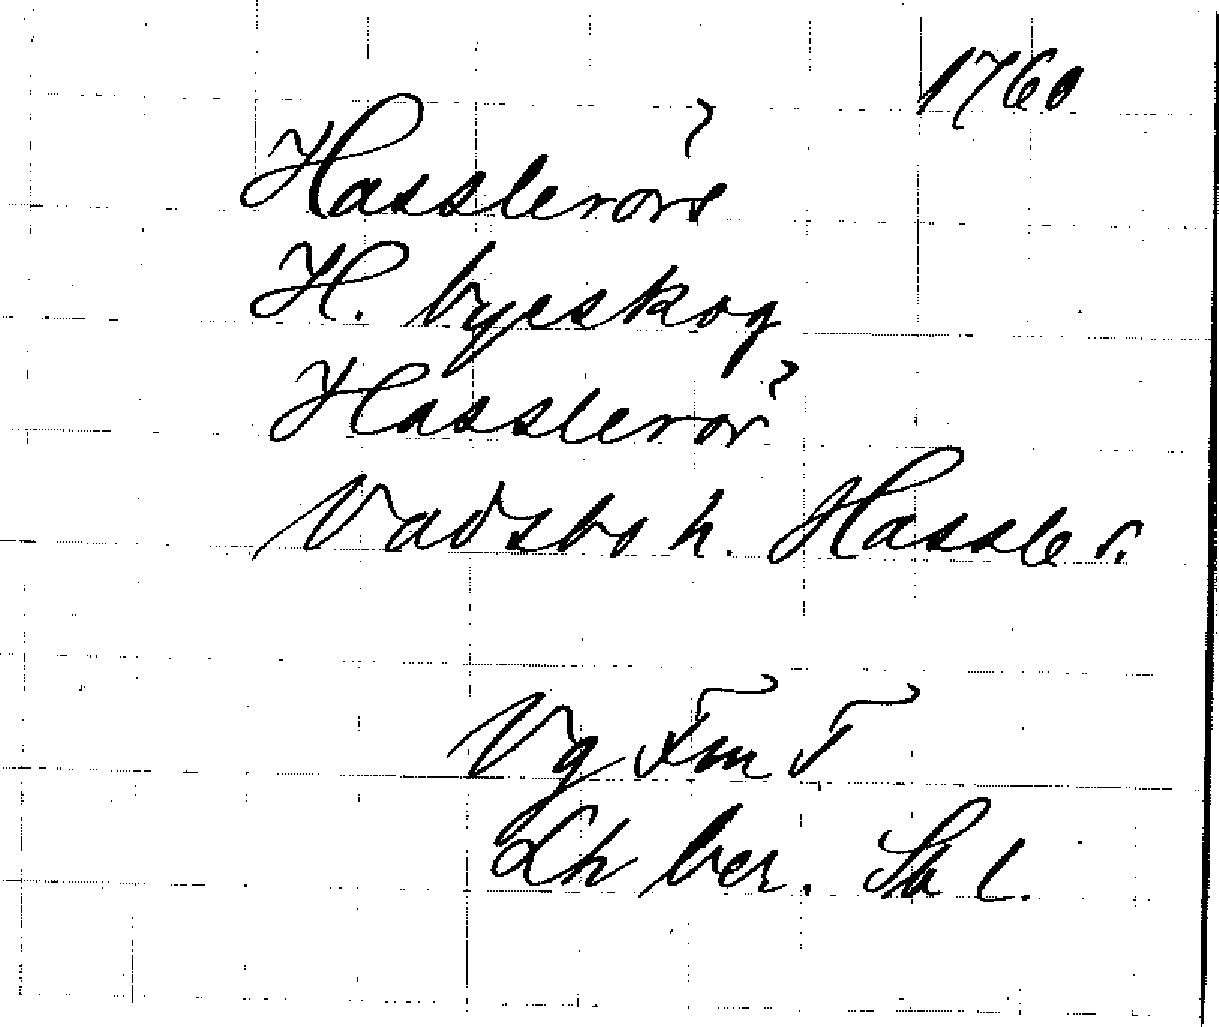 1760
Hasslerörs
H. byeskog
Hasslerör
Vadsbo h. Hassle s.
Vg Fm F
Lh ber. Sk l.